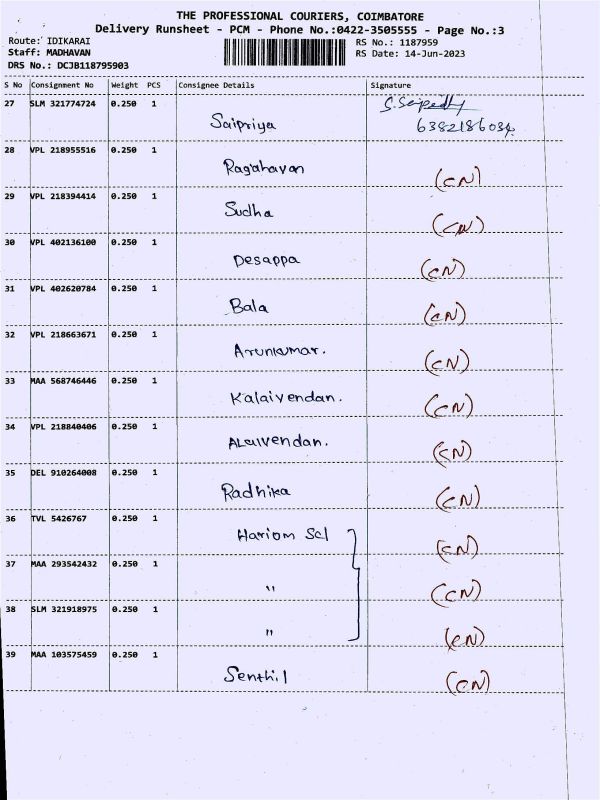 THE PROFESSIONAL COURIERS, COIMBATORE
Delivery Runsheet - PCM - Phone No.:0422-3505555 - Page No.:3
Route: IDIKARAI RS No.: 1187959
Staff: MADHAVAN RS Date: 14-Jun-2023
DRS No.: DCJB118795903
S No Consignment No Weight PCS Consignee Details Signature
27 SLM 321774724 0.250 1
Saipriya 6382186034
28 VPL 218955516 0.250 1
Ragahavan (CN)
29 VPL 218394414 0.250 1
Sudha (CN)
30 VPL 402136100 0.250 1
Desappa (CN)
31 VPL 402620784 0.250 1
Bala (CN)
32 VPL 218663671 0.250 1
Arunkumar. (CN)
33 MAA 568746446 0.250 1
Kalaivendan. (CN)
34 VPL 218840406 0.250 1
ALaivendan. (CN)
35 DEL 910264008 0.250 1
Radhika (CN)
36 TVL 5426767 0.250 1
Hariom Scl (CN)
37 MAA 293542432 0.250 1
" (CN)
38 SLM 321918975 0.250 1
" (CN)
39 MAA 103575459 0.250 1
Senthil (CN)